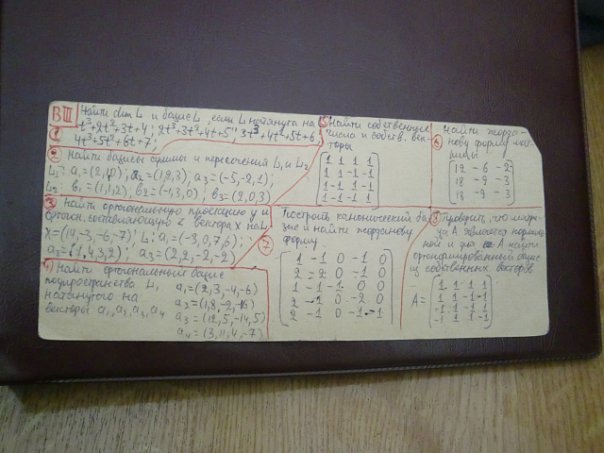 ВIII
① Найти dim L и базис L, если L натянута на
t³+2t²+3t+4; 2t³+3t²+4t+5; 3t³+4t²+5t+6;
4t³+5t²+6t+7;
② Найти базисы суммы и пересечения L₁ и L₂
L₁: a₁=(2,1,0), a₂=(1,2,3), a₃=(-5,-2,1);
L₂: b₁=(1,1,2), b₂=(-1,3,0); b₃=(2,0,3)
③ Найти ортогональную проекцию y и
ортогон. составляющую z вектора x на L
x=(14,-3,-6,-7) L: a₁=(-3,0,7,6);
a₂=(1,4,3,2); a₃=(2,2,-2,-2)
④ Найти ортогональный базис
подпространства L,
натянутого на
векторы a₁, a₂, a₃, a₄
a₁=(2,3,-4,-6)
a₂=(1,8,-2,-16)
a₃=(12,5,-14,5)
a₄=(3,11,4,-7)
⑤ Найти собственные
числа и собств. век-
торы
1 1 1 1
1 1 -1 -1
1 -1 1 -1
1 -1 -1 1
⑥ Найти жорда-
нову форму мат-
рицы
12 -6 -2
18 -9 -3
18 -9 -3
⑦ Построить канонический ба-
зис и найти жорданову
форму
1 -1 0 -1 0
2 -2 0 -1 0
1 -1 -1 0 0
2 -1 0 -2 0
2 -1 0 -1 -1
Проверить, что матри-
ца A является нормаль-
ной и для A найти
ортонормированный базис
из собственных векторов
A=
1 1 1 1
1 1 -1 -1
-1 1 -1 1
-1 1 1 -1